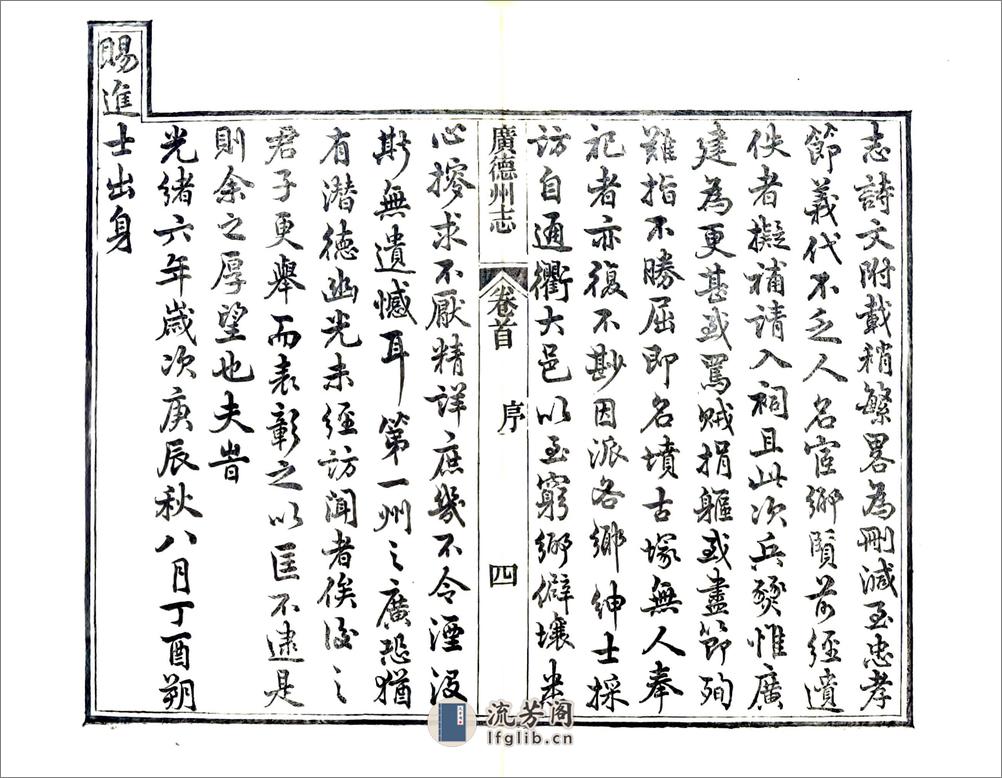 志詩文附載稍繁畧為刪減至忠孝
節義代不乏人名宦鄉賢前經遺
佚者擬補請入祠且此次兵燹惟廣
建為更甚或罵賊捐軀或盡節殉
難指不勝屈即名墳古塚無人奉
祀者亦復不尠因派各鄉紳士採
訪自通衢大邑以至窮鄉僻壤悉
廣德州志
卷首
序
四
心搜求不厭精詳庶幾不令湮沒
斯無遺憾耳第一州之廣恐猶
有潛德幽光未經訪聞者俟後之
君子更舉而表彰之以匡不逮是
則余之厚望也夫旹
光緒六年歲次庚辰秋八月丁酉朔
賜進士出身
流芳阁
lfglib.cn